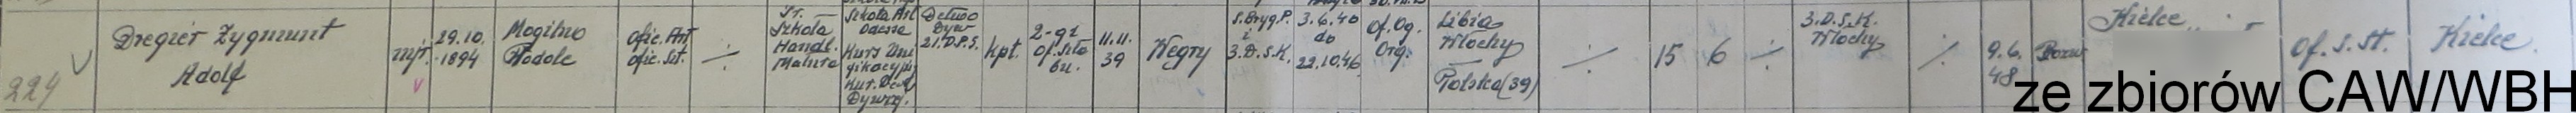 224
V
Dregier Zygmunt
Adolf
mjr.
v
29.10.
1894
Mogilno
Podole
Ofic. Art
Ofic. Szt.
Śr.
Szkoła
Handl.
Matura
Szkoła Art
Odessa
Kurs
Dyw
21.D.P.S.
kpt.
2-gi
Of. Szta
bu.
11.11.
39
Węgry
S.Bryg.P.
i
3.D.S.K.
3.6.40
do
22.10.46
Of. Og.
Org.
Libia
Włochy
Polska (39)
15
6
3.D.S.K.
Włochy
9.6.
48
Kielce
Of. S. St.
Kielce
ze zbiorów CAW/WBH